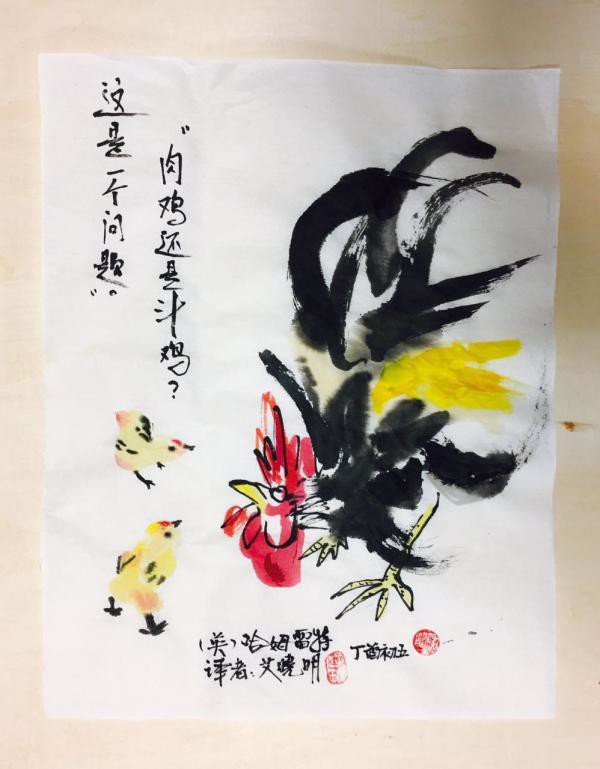 "肉鸡还是斗鸡？
这是一个问题"。
（英）哈姆雷特
译者：艾晓明
丁酉初五